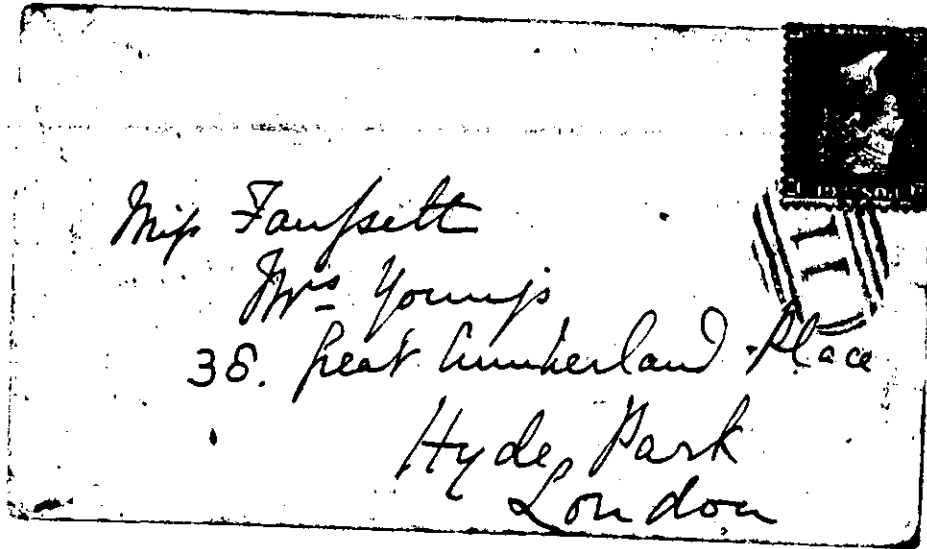 Miss Faussett
Mrs Young's
38. Great Cumberland Place
Hyde Park
London
11